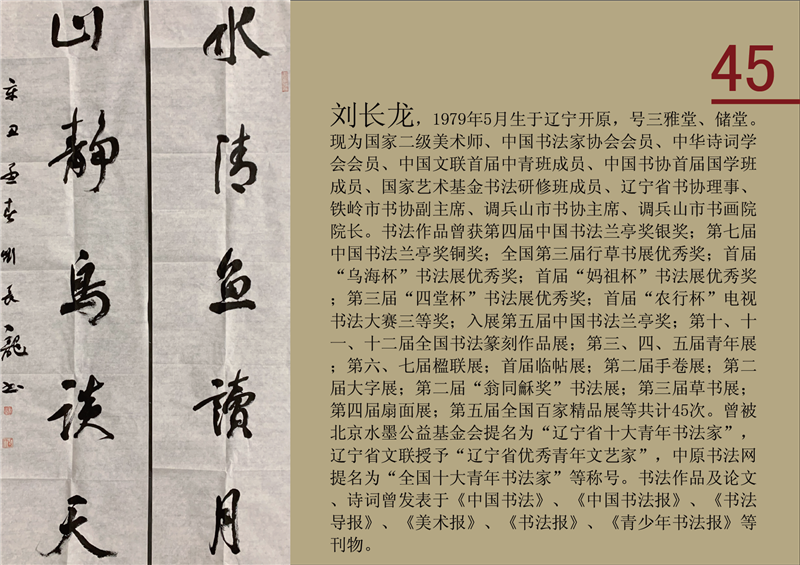 水清鱼讀月
山静鳥談天
辛丑孟春劉長龍書
45
刘长龙，1979年5月生于辽宁开原，号三雅堂、储堂。
现为国家二级美术师、中国书法家协会会员、中华诗词学
会会员、中国文联首届中青班成员、中国书协首届国学班
成员、国家艺术基金书法研修班成员、辽宁省书协理事、
铁岭市书协副主席、调兵山市书协主席、调兵山市书画院
院长。书法作品曾获第四届中国书法兰亭奖银奖；第七届
中国书法兰亭奖铜奖；全国第三届行草书展优秀奖；首届
“乌海杯”书法展优秀奖；首届“妈祖杯”书法展优秀奖
；第三届“四堂杯”书法展优秀奖；首届“农行杯”电视
书法大赛三等奖；入展第五届中国书法兰亭奖；第十、十
一、十二届全国书法篆刻作品展；第三、四、五届青年展
；第六、七届楹联展；首届临帖展；第二届手卷展；第二
届大字展；第二届“翁同龢奖”书法展；第三届草书展；
第四届扇面展；第五届全国百家精品展等共计45次。曾被
北京水墨公益基金会提名为“辽宁省十大青年书法家”，
辽宁省文联授予“辽宁省优秀青年文艺家”，中原书法网
提名为“全国十大青年书法家”等称号。书法作品及论文
、诗词曾发表于《中国书法》、《中国书法报》、《书法
导报》、《美术报》、《书法报》、《青少年书法报》等
刊物。